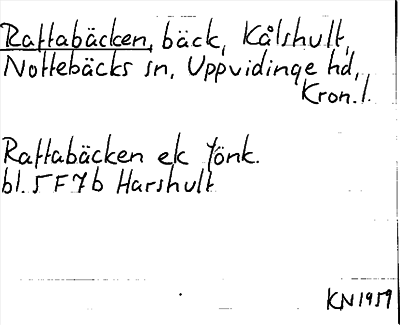 Raftabäcken, bäck, Kålshult,
Nottebäcks sn, Uppvidinge hd,
Kron. l.
Raftabäcken ek Jönk.
bl. 5F7b Harshult
KN 1959